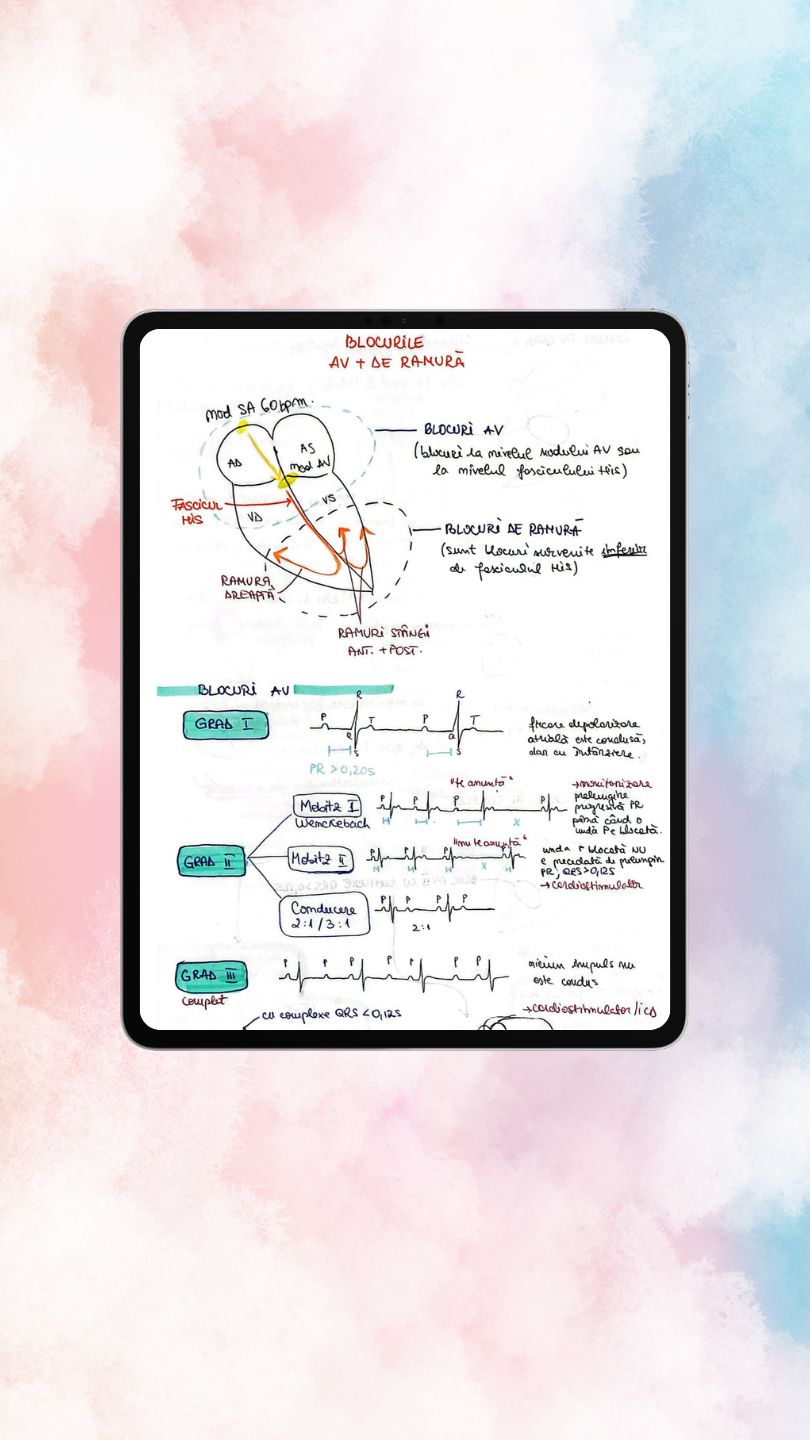 BLOCURILE
AV + DE RAMURĂ
nod SA 60 bpm.
AD
AS
nod AV
FASCICUL
HIS
VD
VS
BLOCURI AV
(blocuri la nivelul nodului AV sau
la nivelul fasciculului His)
BLOCURI DE RAMURĂ
(sunt blocuri survenite inferior
de fasciculul His)
RAMURA
DREAPTĂ
RAMURI STÂNGI
ANT. + POST.
BLOCURI AV
GRAD I
P
R
Q
S
T
P
R
Q
S
T
PR > 0,20s
fiecare depolarizare
atrială este condusă,
dar cu întârziere.
GRAD II
Mobitz I
Wenckebach
P P P P
"te anunță"
x
→ monitorizare
prelungire
progresivă PR
până când o
undă P e blocată.
Mobitz II
P P P P
"nu te anunță"
x
unda P blocată NU
e precedată de prelungire
PR, QRS>0,12s
→ cardiostimulator
Conducere
2:1 / 3:1
P P P P
2:1
GRAD III
complet
P P P P P P P
niciun impuls nu
este condus
→ cardiostimulator/ICD
cu complexe QRS < 0,12s